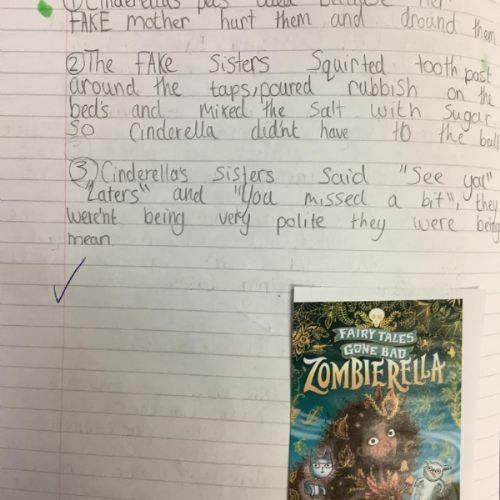 ① Cinderella's pets died because her
FAKE mother hurt them and dround them
② The FAKE Sisters Squirted tooth past
around the taps, poured rubbish on the
bed's and mixed the Salt with Sugar
So Cinderella didn't have to the ball
③ Cinderella's sisters said "See ya"
"Laters" and "You missed a bit", they
were'nt being very polite they were being
mean
FAIRY TALES
GONE BAD
ZOMBIERELLA